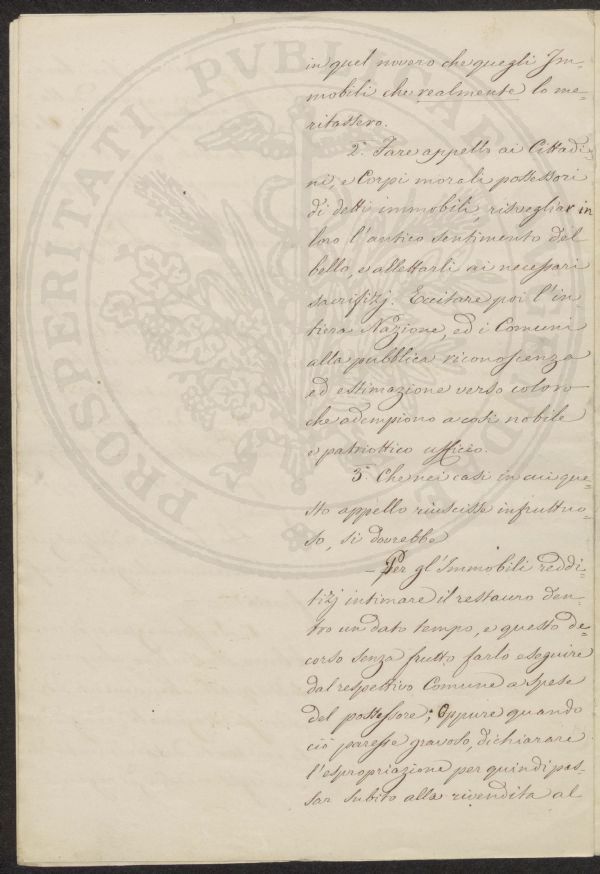 in quel novero che quegli Im=
mobili che realmente lo me=
ritassero.
2.° Fare appello ai Cittadi=
ni, e Corpi morali possessori
di detti immobili, risvegliar in
loro l'antico sentimento del
bello, e allettarli ai necessari
sacrifizj. Eccitare poi l'in
tiera Nazione, ed i Comuni
alla pubblica riconoscenza
ed estimazione verso coloro
che adempiono a così nobile
e patriottico ufficio.
3.° Che nei casi in cui que=
sto appello riuscisse infruttuo=
so, si dovrebbe
– Per gl'Immobili reddi=
tizj intimare il restauro den=
tro un dato tempo, e questo de=
corso senza frutto farlo eseguire
dal respettivo Comune a spese
del possessore; Oppure quando
ciò paresse gravoso, dichiarare
l'espropriazione per quindi pas=
sar subito alla rivendita al
PROSPERITATI PVBLICAE